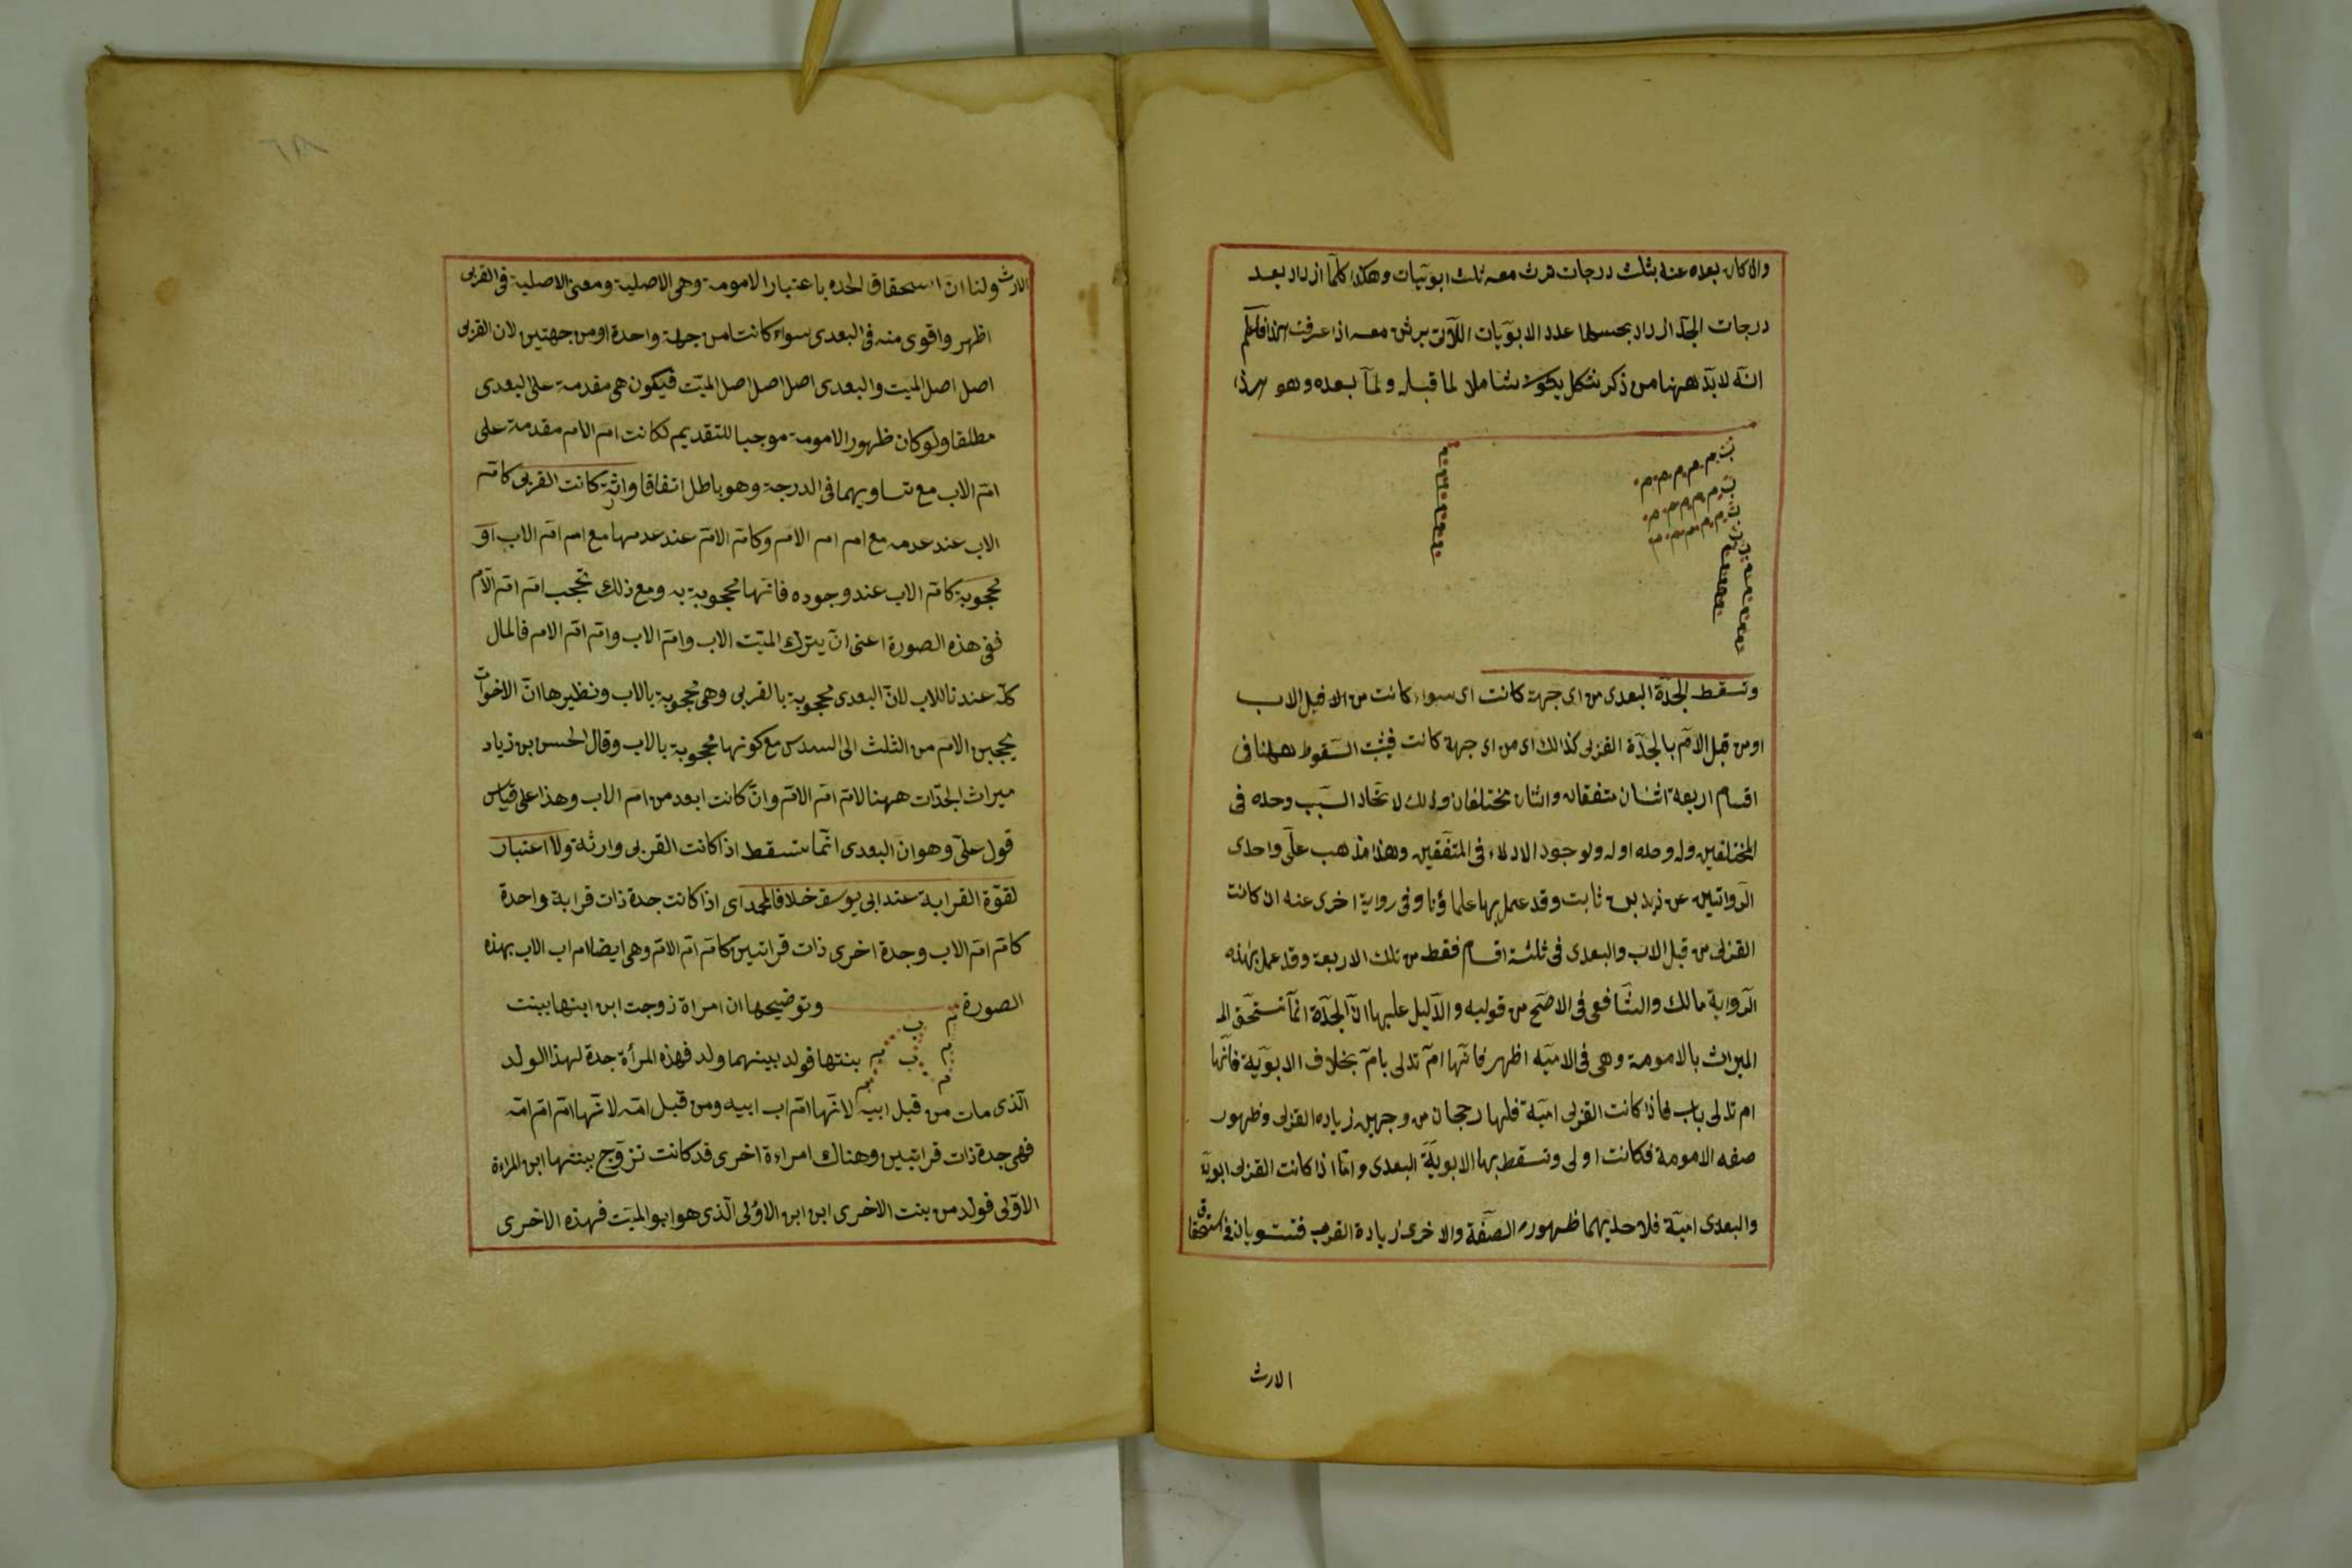 وان كان بعده عنه بثلث درجات ترث معه ثلث ابويات وهكذا كلما ازداد بعد
درجات الجد ازداد بحسبها عدد الابويات اللاتى يرثن معه اذا عرفت هذا فاعلم
انه لابد ههنا من ذكر شكل يكون شاملا لما قبله ولما بعده وهو هذا
وتسقط الجدة البعدى من اى جهة كانت اى سواء كانت من قبل الاب
او من قبل الام بالجدة القربى كذلك اى من اى جهة كانت فيثبت السقوط ههنا فى
اقسام اربعة اثنان متفقان واثنان مختلفان وذلك لاتحاد السبب وحده فى
المختلفين وله ولوجود الادلاء فى المتفقين وهذا مذهب على واحدى
الروايتين عن زيد بن ثابت وقد عمل بها علماؤنا وفى رواية اخرى عنه ان كانت
القربى من قبل الاب والبعدى فى ثلثة اقسام فقط من تلك الاربعة وقد عمل بهذه
الرواية مالك والشافعى فى الاصح من قوليه والدليل عليها ان الجدة انما تستحق
الميراث بالامومة وهى فى الامية اظهر فانها ام تدلى بام بخلاف الابوية فانها
ام تدلى باب فاذا كانت القربى امية فلها رجحان من وجهين زيادة القربى وظهور
صفه الامومة فكانت اولى وتسقط بها الابوية البعدى واما اذا كانت القربى ابوية
والبعدى امية فلاحديهما ظهور الصفة والاخرى زيادة القرب فتستويان فى استحقاق
الارث
الارث ولنا ان استحقاق الجده باعتبار الامومة وهى الاصلية ومعنى الاصلية فى القربى
اظهر واقوى منه فى البعدى سواء كانتا من جهة واحدة او من جهتين لان القربى
اصل اصل الميت والبعدى اصل اصل اصل الميت فيكون هى مقدمة على البعدى
مطلقا ولو كان ظهور الامومة موجبا للتقديم لكانت ام الام مقدمة على
ام الاب مع تساويهما فى الدرجة وهو باطل اتفاقا وارثة كانت القربى كام
الاب عند عدمه مع ام ام الام وكام الام عند عدمها مع ام ام الاب او
محجوبة كام الاب عند وجوده فانها محجوبة به ومع ذلك تحجب ام ام الام
ففى هذه الصورة اعنى ان يترك الميت الاب وام الاب وام ام الام فالمال
كله عندنا للاب لان البعدى محجوبة بالقربى وهى محجوبة بالاب ونظيرها ان الاخوات
يحجبن الام من الثلث الى السدس مع كونها محجوبة بالاب وقال الحسن بن زياد
ميراث الجدات ههنا لام ام الام وان كانت ابعد من ام الاب وهذا على قياس
قول على وهو ان البعدى انما تسقط اذا كانت القربى وارثة ولا اعتبار
لقوة القرابة عند ابى يوسف خلافا لمحمد اى اذا كانت جدة ذات قرابة واحدة
كام ام الاب وجدة اخرى ذات قرابتين كام ام الام وهى ايضا ام اب الاب بهذه
الصورة وتوضيحها ان امراة زوجت ابن ابنها ببنت
بنتها فولد بينهما ولد فهذه المرأة جدة لهذا الولد
الذى مات من قبل ابيه لانها ام اب ابيه ومن قبل امه لانها ام ام امه
فهى جدة ذات قرابتين وهناك امراءة اخرى قد كانت تزوج ببنتها ابن المراءة
الاولى فولد من بنت الاخرى ابن ابن الاولى الذى هو ابو الميت فهذه الاخرى